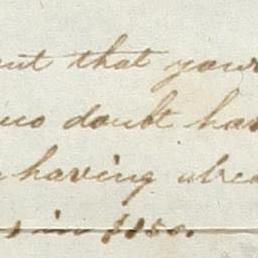 that your
no doubt hav
having alrea
in $150.